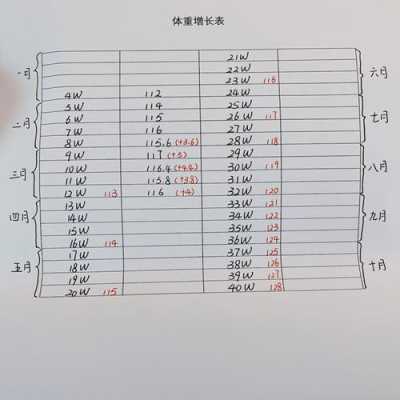 体重增长表
一月
二月
三月
四月
五月
4W 112
5W 114
6W 115
7W 116
8W 115.6 (+3.6)
9W 117 (+5)
10W 116.4 (+4.4)
11W 115.8 (+3.8)
12W 113 116 (+4)
13W
14W
15W
16W 114
17W
18W
19W
20W 115
21W
22W
23W 116
24W
25W
26W 117
27W
28W 118
29W
30W 119
31W
32W 120
33W 121
34W 122
35W 123
36W 124
37W 125
38W 126
39W 127
40W 128
六月
七月
八月
九月
十月